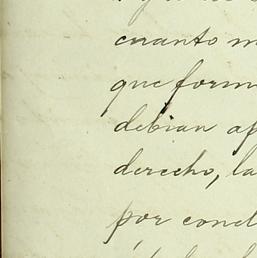 cuanto m
que form
debian ap
derecho, la
por cond